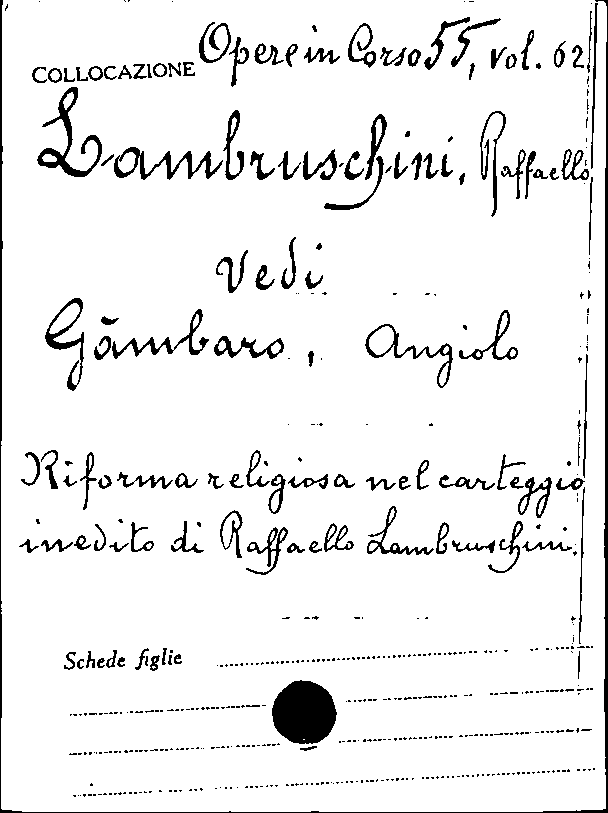 COLLOCAZIONE Opere in Corso 55, vol. 62
Lambruschini, Raffaello
Vedi
Gāmbaro, Angiolo
Riforma religiosa nel carteggio
inedito di Raffaello Lambruschini.
Schede figlie